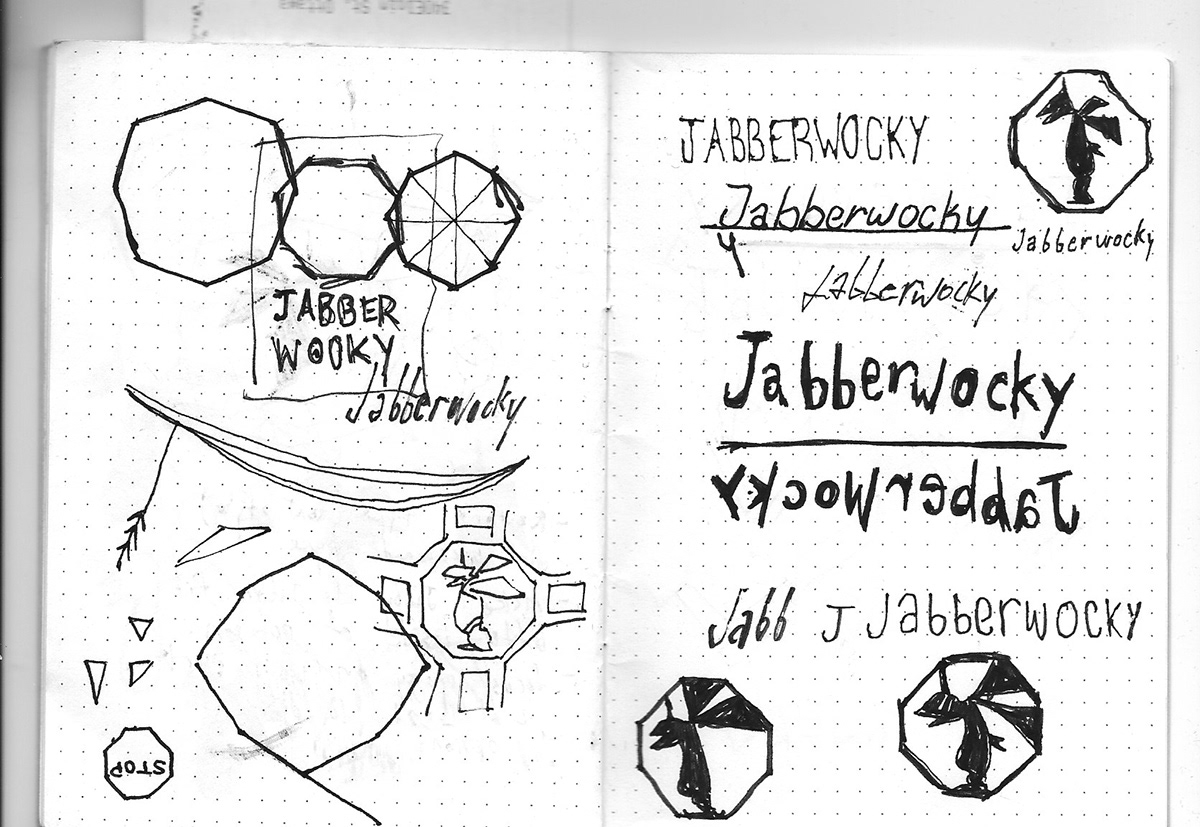 JABBER
WOOKY
Jabberwocky
STOP
JABBERWOCKY
Jabberwocky
y
Jabberwocky
Jabberwocky
Jabberwocky
JabberWocky
Jabb J Jabberwocky